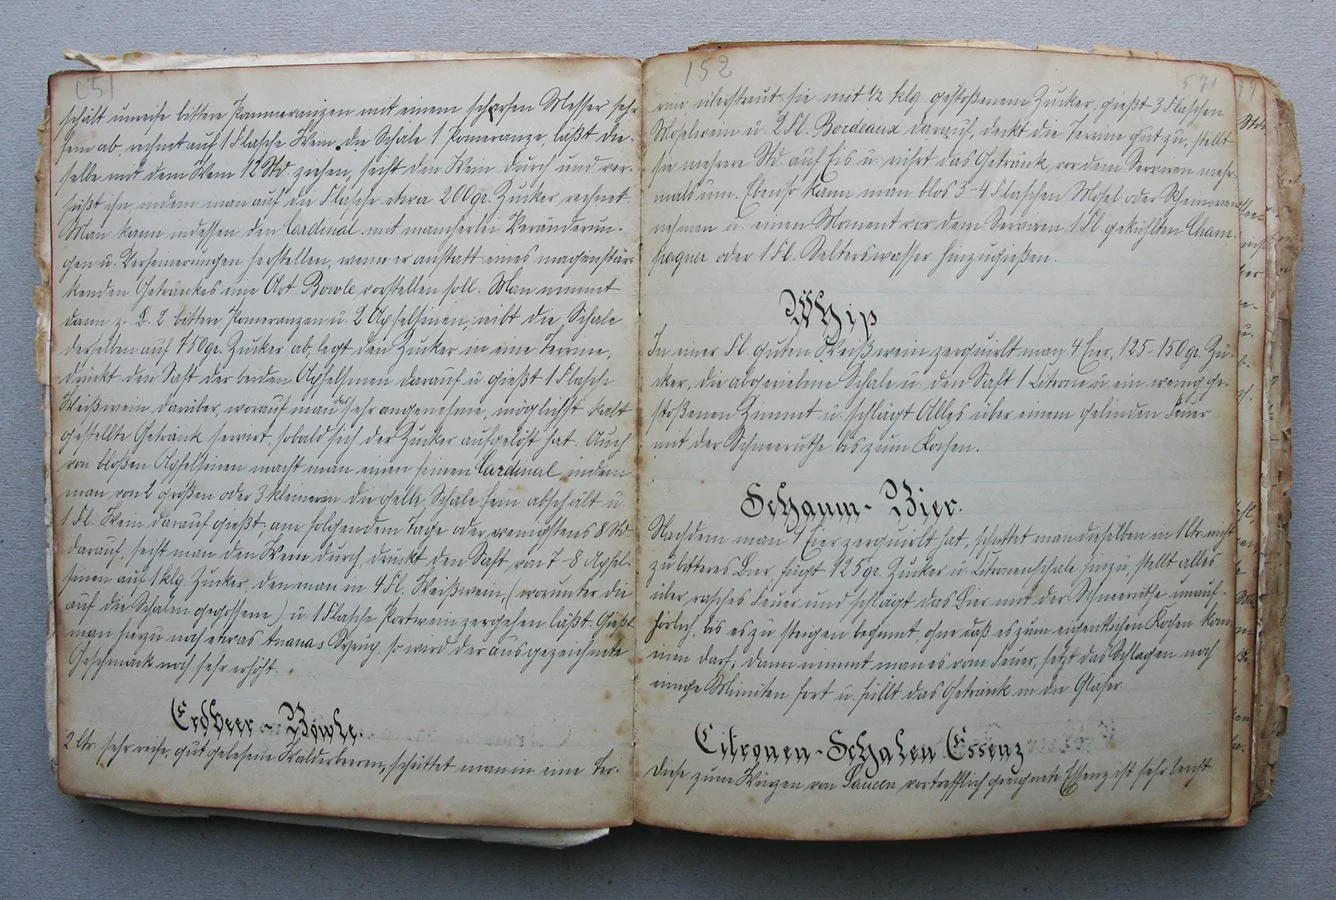 151
schält unreife bittere Pommeranzen mit einem scharfen Messer sehr
fein ab, rechnet auf 1 Flasche Wein die Schale 1 Pomeranze, läßt die-
selbe mit dem Wein 12 Std. ziehen, seiht den Wein durch und ver-
süßt ihn indem man auf die Flasche etwa 200 gr. Zucker rechnet.
Man kann indessen den Cardinal mit mancherlei Veränderun-
gen u. Verfeinerungen herstellen, wenn er anstatt eines magenstär-
kenden Getränkes eine Art Bowle vorstellen soll. Man nimmt
dann z. B. 2 bittere Pomeranzen u. 2 Apfelsinen, reibt die Schale
derselben auf 750 gr. Zucker ab, legt den Zucker in eine Terrine,
drückt den Saft der beiden Apfelsinen darauf u. gießt 1 Flasche
Weißwein darüber, worauf man das sehr angenehme, möglichst kalt
gestellte Getränk servirt, sobald sich der Zucker aufgelöst hat. Auch
von bloßen Apfelsinen macht man einen feinen Cardinal, indem
man von 2 großen oder 3 kleineren die gelbe Schale fein abschält u.
1 Fl. Wein darauf gießt, am folgenden Tage oder wenigstens 8 Std.
darauf, seiht man den Wein durch, drückt den Saft von 7-8 Apfel-
sinen auf 1 klg. Zucker, den man in 4 Fl. Weißwein, (worunter der
auf die Schalen gegossene) u. 1 Flasche Portwein zergehen läßt. Gießt
man hiezu noch etwas Ananas Syrup so wird der ausgezeichnete
Geschmack noch sehr erhöht.
Erdbeer-Bowle.
2 Ltr. sehr reife, gut gelesene Walderbeeren, schüttet man in eine Ter-
152
rine überstreut sie mit ½ klg. gestoßenem Zucker, gießt 3 Flaschen
Moselwein u. 2 Fl. Bordeaux darauf, deckt die Terrine gut zu, stellt
sie mehrere Std. auf Eis u. rührt das Getränk vor dem Serviren mehr-
mals um. Ebenso kann man blos 3-4 Flaschen Mosel oder Rheinwein
nehmen u. einen Moment vor dem Serviren 1 Fl. gekühlten Cham-
pagner oder 1 Fl. Selterswasser hinzugießen.
Whip
In einer Fl. guten Weißwein zerquirlt man 4 Eier, 125-150 gr. Zu-
cker, die abgeriebene Schale u. den Saft 1 Citrone u. ein wenig ge-
stoßenen Zimmt u. schlägt Alles über einem gelinden Feuer
mit der Schneeruthe bis zum Kochen.
Schaum-Bier.
Nachdem man 4 Eier zerquirlt hat, schüttet man dieselben in 1 Ltr. nicht
zu bitteres Bier, fügt 125 gr. Zucker u. Citronenschale hinzu, stellt alles
über rasches Feuer und schlägt das Bier mit der Schneeruthe unauf-
hörlich, bis es zu steigen beginnt, ohne daß es zum eigentlichen Kochen kom-
men darf; dann nimmt man es vom Feuer, setzt das Schlagen noch
einige Minuten fort u. füllt das Getränk in die Gläser.
Citronen-Schalen Essenz
Diese zum Würzen von Saucen vortrefflich geeignete Essenz ist sehr leicht